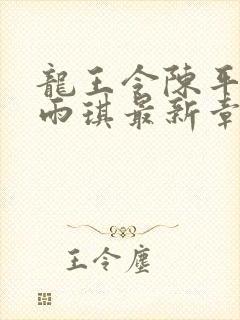 龍王令陳平
雨琪最新章
王令塵